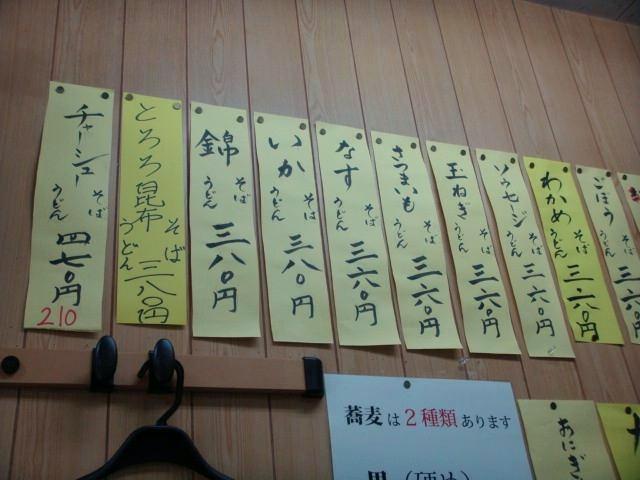 チャーシュー そば うどん 四七〇円
210
とろろ昆布 そば うどん 三八〇円
錦 そば うどん 三八〇円
いか そば うどん 三八〇円
なす そば うどん 三六〇円
さつまいも そば うどん 三六〇円
玉ねぎ そば うどん 三六〇円
ソーセージ そば うどん 三六〇円
わかめ そば うどん 三六〇円
ごぼう そば うどん 三六〇円
蕎麦は2種類あります
黒（硬め）
おにぎ